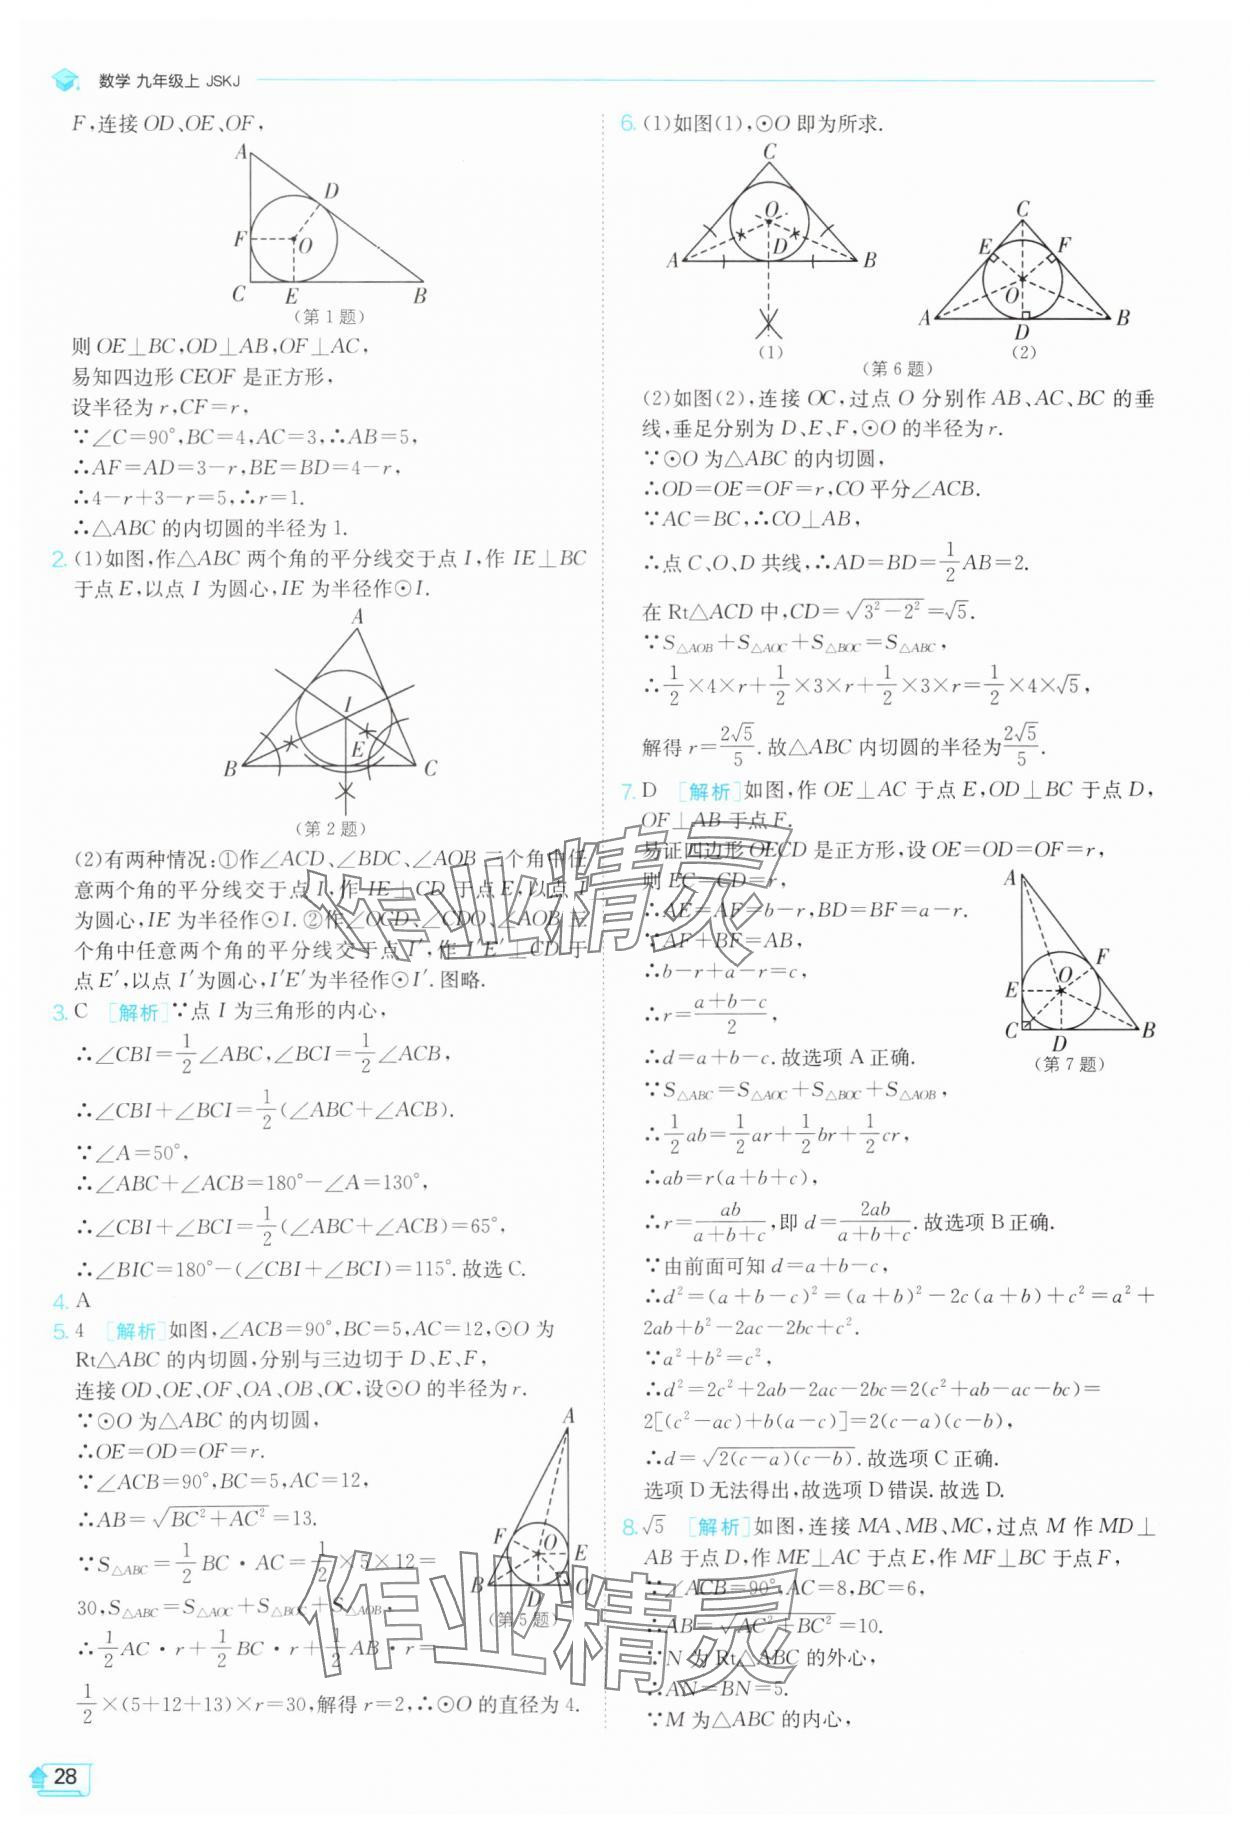 数学 九年级上 JSKJ
F,连接 OD、OE、OF,
A
D
F
O
C
E
B
(第 1 题)
则 OE⊥BC,OD⊥AB,OF⊥AC,
易知四边形 CEOF 是正方形,
设半径为 r,CF=r,
∵∠C=90°,BC=4,AC=3,∴AB=5,
∴AF=AD=3-r,BE=BD=4-r,
∴4-r+3-r=5,∴r=1.
∴△ABC 的内切圆的半径为 1.
2. (1)如图,作△ABC 两个角的平分线交于点 I,作 IE⊥BC
于点 E,以点 I 为圆心,IE 为半径作⊙I.
A
I
B
E
C
(第 2 题)
(2)有两种情况:①作∠ACD、∠BDC、∠AOB 三个角中任
意两个角的平分线交于点 I,作 IE⊥CD 于点 E,以点 I
为圆心,IE 为半径作⊙I. ②作∠OCD、∠CDO、∠AOB 三
个角中任意两个角的平分线交于点 I′,作 I′E′⊥CD 于
点 E′,以点 I′为圆心,I′E′为半径作⊙I′. 图略.
3. C [解析]∵点 I 为三角形的内心,
∴∠CBI=1/2∠ABC,∠BCI=1/2∠ACB,
∴∠CBI+∠BCI=1/2(∠ABC+∠ACB).
∵∠A=50°,
∴∠ABC+∠ACB=180°-∠A=130°,
∴∠CBI+∠BCI=1/2(∠ABC+∠ACB)=65°,
∴∠BIC=180°-(∠CBI+∠BCI)=115°. 故选 C.
4. A
5. 4 [解析]如图,∠ACB=90°,BC=5,AC=12,⊙O 为
Rt△ABC 的内切圆,分别与三边切于 D、E、F,
连接 OD、OE、OF、OA、OB、OC,设⊙O 的半径为 r.
∵⊙O 为△ABC 的内切圆,
∴OE=OD=OF=r.
∵∠ACB=90°,BC=5,AC=12,
∴AB=√(BC²+AC²)=13.
∵S△ABC=1/2BC·AC=1/2×5×12=
30,S△ABC=S△AOC+S△BOC+S△AOB,
∴1/2AC·r+1/2BC·r+1/2AB·r=
1/2×(5+12+13)×r=30,解得 r=2,∴⊙O 的直径为 4.
A
F
O
E
B
D
C
(第 5 题)
28
6. (1)如图(1),⊙O 即为所求.
C
O
A
D
B
(1)
C
E
F
O
A
D
B
(2)
(第 6 题)
(2)如图(2),连接 OC,过点 O 分别作 AB、AC、BC 的垂
线,垂足分别为 D、E、F,⊙O 的半径为 r.
∵⊙O 为△ABC 的内切圆,
∴OD=OE=OF=r,CO 平分∠ACB.
∵AC=BC,∴CO⊥AB,
∴点 C、O、D 共线,∴AD=BD=1/2AB=2.
在 Rt△ACD 中,CD=√(3²-2²)=√5.
∵S△AOB+S△AOC+S△BOC=S△ABC,
∴1/2×4×r+1/2×3×r+1/2×3×r=1/2×4×√5,
解得 r=2√5/5. 故△ABC 内切圆的半径为2√5/5.
7. D [解析]如图,作 OE⊥AC 于点 E,OD⊥BC 于点 D,
OF⊥AB 于点 F.
易证四边形 OECD 是正方形,设 OE=OD=OF=r,
则 EC=CD=r,
∴AE=AF=b-r,BD=BF=a-r.
∵AF+BF=AB,
∴b-r+a-r=c,
∴r=(a+b-c)/2,
∴d=a+b-c. 故选项 A 正确.
A
F
O
E
C
D
B
(第 7 题)
∵S△ABC=S△AOC+S△BOC+S△AOB,
∴1/2ab=1/2ar+1/2br+1/2cr,
∴ab=r(a+b+c),
∴r=ab/(a+b+c),即 d=2ab/(a+b+c). 故选项 B 正确.
∵由前面可知 d=a+b-c,
∴d²=(a+b-c)²=(a+b)²-2c(a+b)+c²=a²+
2ab+b²-2ac-2bc+c².
∵a²+b²=c²,
∴d²=2c²+2ab-2ac-2bc=2(c²+ab-ac-bc)=
2[(c²-ac)+b(a-c)]=2(c-a)(c-b),
∴d=√(2(c-a)(c-b)). 故选项 C 正确.
选项 D 无法得出,故选项 D 错误. 故选 D.
8. √5 [解析]如图,连接 MA、MB、MC,过点 M 作 MD⊥
AB 于点 D,作 ME⊥AC 于点 E,作 MF⊥BC 于点 F,
∵∠ACB=90°,AC=8,BC=6,
∴AB=√(AC²+BC²)=10.
∵N 为 Rt△ABC 的外心,
∴AN=BN=5.
∵M 为△ABC 的内心,
作业精灵
作业精灵